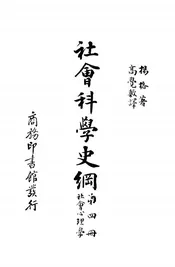 楊格著
高覺敷譯
社會科學史綱 第四冊
社會心理學
商務印書館發行